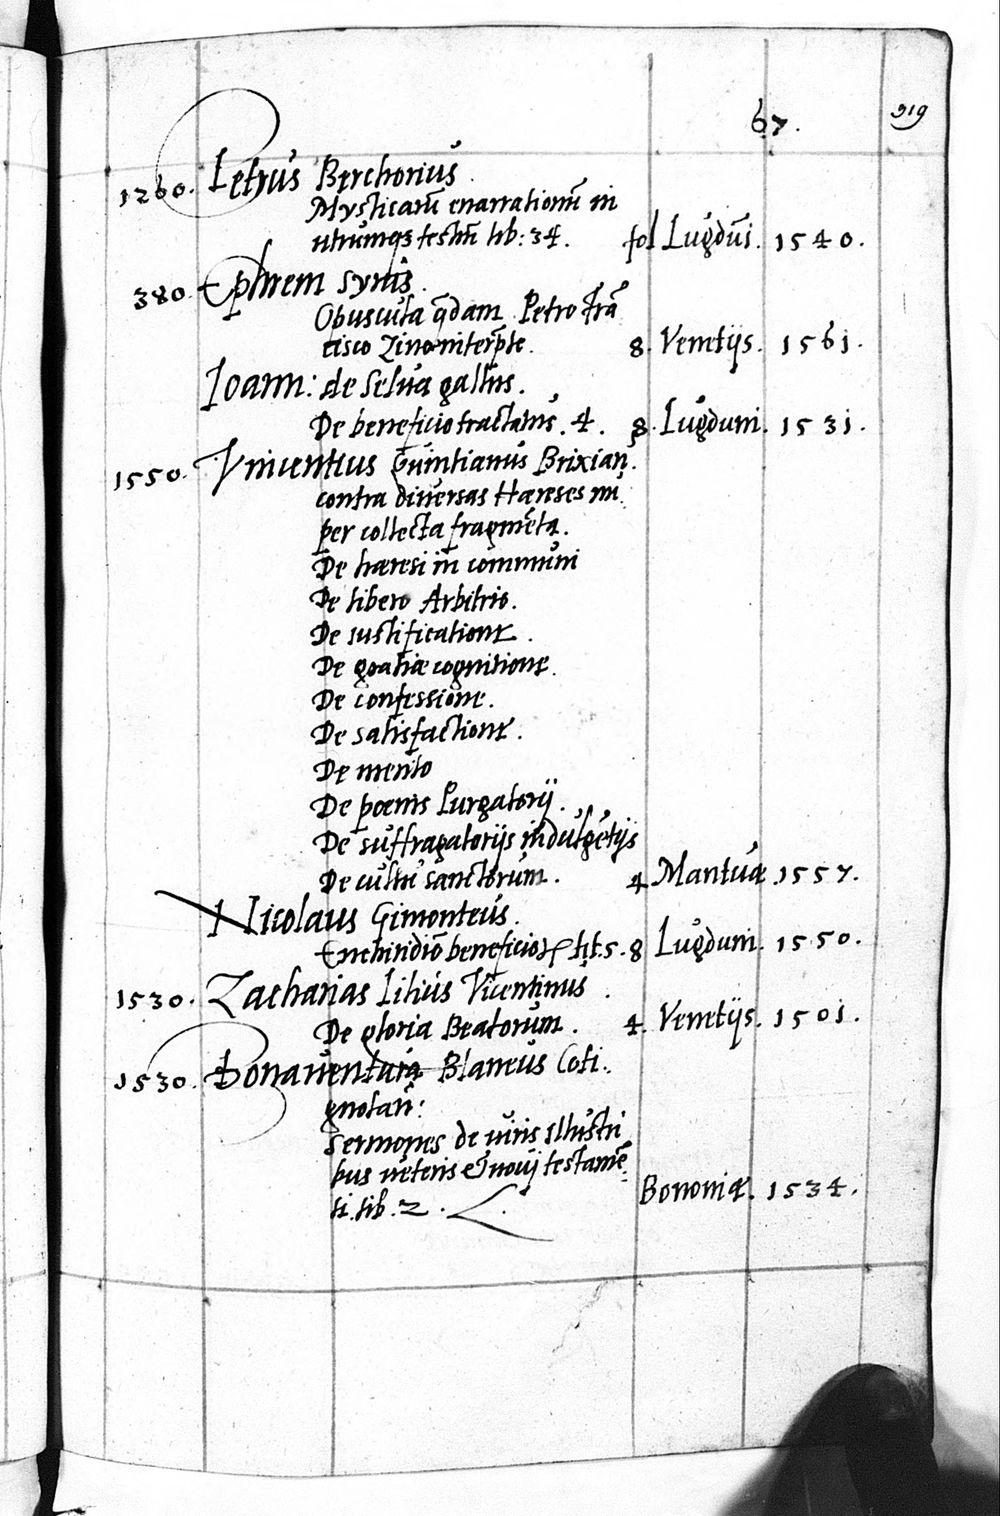 67.
919
1260. Petrus Berchorius.
Mysticarū enarrationū in
utrumqз testm̄ lib: 34. fol Lugduni. 1540.
380. Ephrem Syrus.
Opuscula q̄dam Petro Frā
cisco Zino interp̄te. 8. Venetijs. 1561.
Ioann: de Selua gallus.
De beneficio tractatus. 4. 8. Lugduni. 1531.
1550. Vincentius Quintianus Brixian.
contra diuersas Hæreses nu
per collecta fragmēta.
De hæresi in communi
De libero Arbitrio.
De iustificatione.
De gratiæ cognitione.
De confessione.
De satisfactione.
De merito
De poenis Purgatorij.
De suffragatorijs indulgētijs
De cultu sanctorum. 4 Mantuæ. 1557.
Nicolaus Gimonteus.
Enchiridiō beneficioꝝ tit. 5. 8 Lugduni. 1550.
1530. Zacharias Lilius Vicentinus.
De gloria Beatorum. 4. Venetijs. 1501.
1530. Bonauentura Blaneus Coti.
gnolan:
Sermones de uiris Illustri
bus ueteris et noui testamē
ti. lib. 2. Bononiæ. 1534.